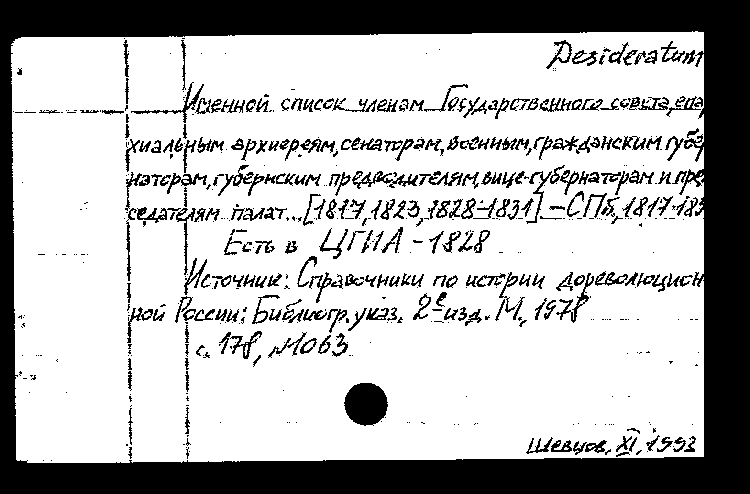 Desideratum
Именной список членам Государственного совета, епар
хиальным архиереям, сенаторам, военным, гражданским губер
наторам, губернским предводителям, вице-губернаторам и пре
седателям палат... [1817, 1823, 1828-1831] – СПб, 1817-183
Есть в ЦГИА - 1828
Источник: Справочники по истории дореволюцион
ной России: Библиогр. указ. 2е изд. М., 1978
с. 178, №1063
Шевцов, XI, 1993